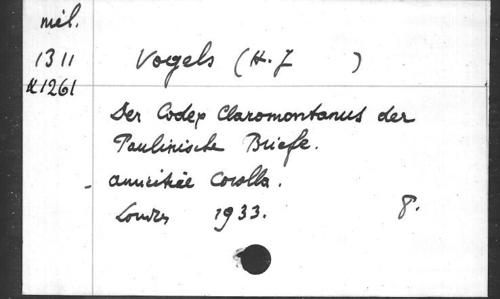 mél.
1311
Vogels (H. J )
1261
Der Codex Claromontanus der
Paulinische Briefe.
- amicitiæ Corolla.
Londres 1933. 8.